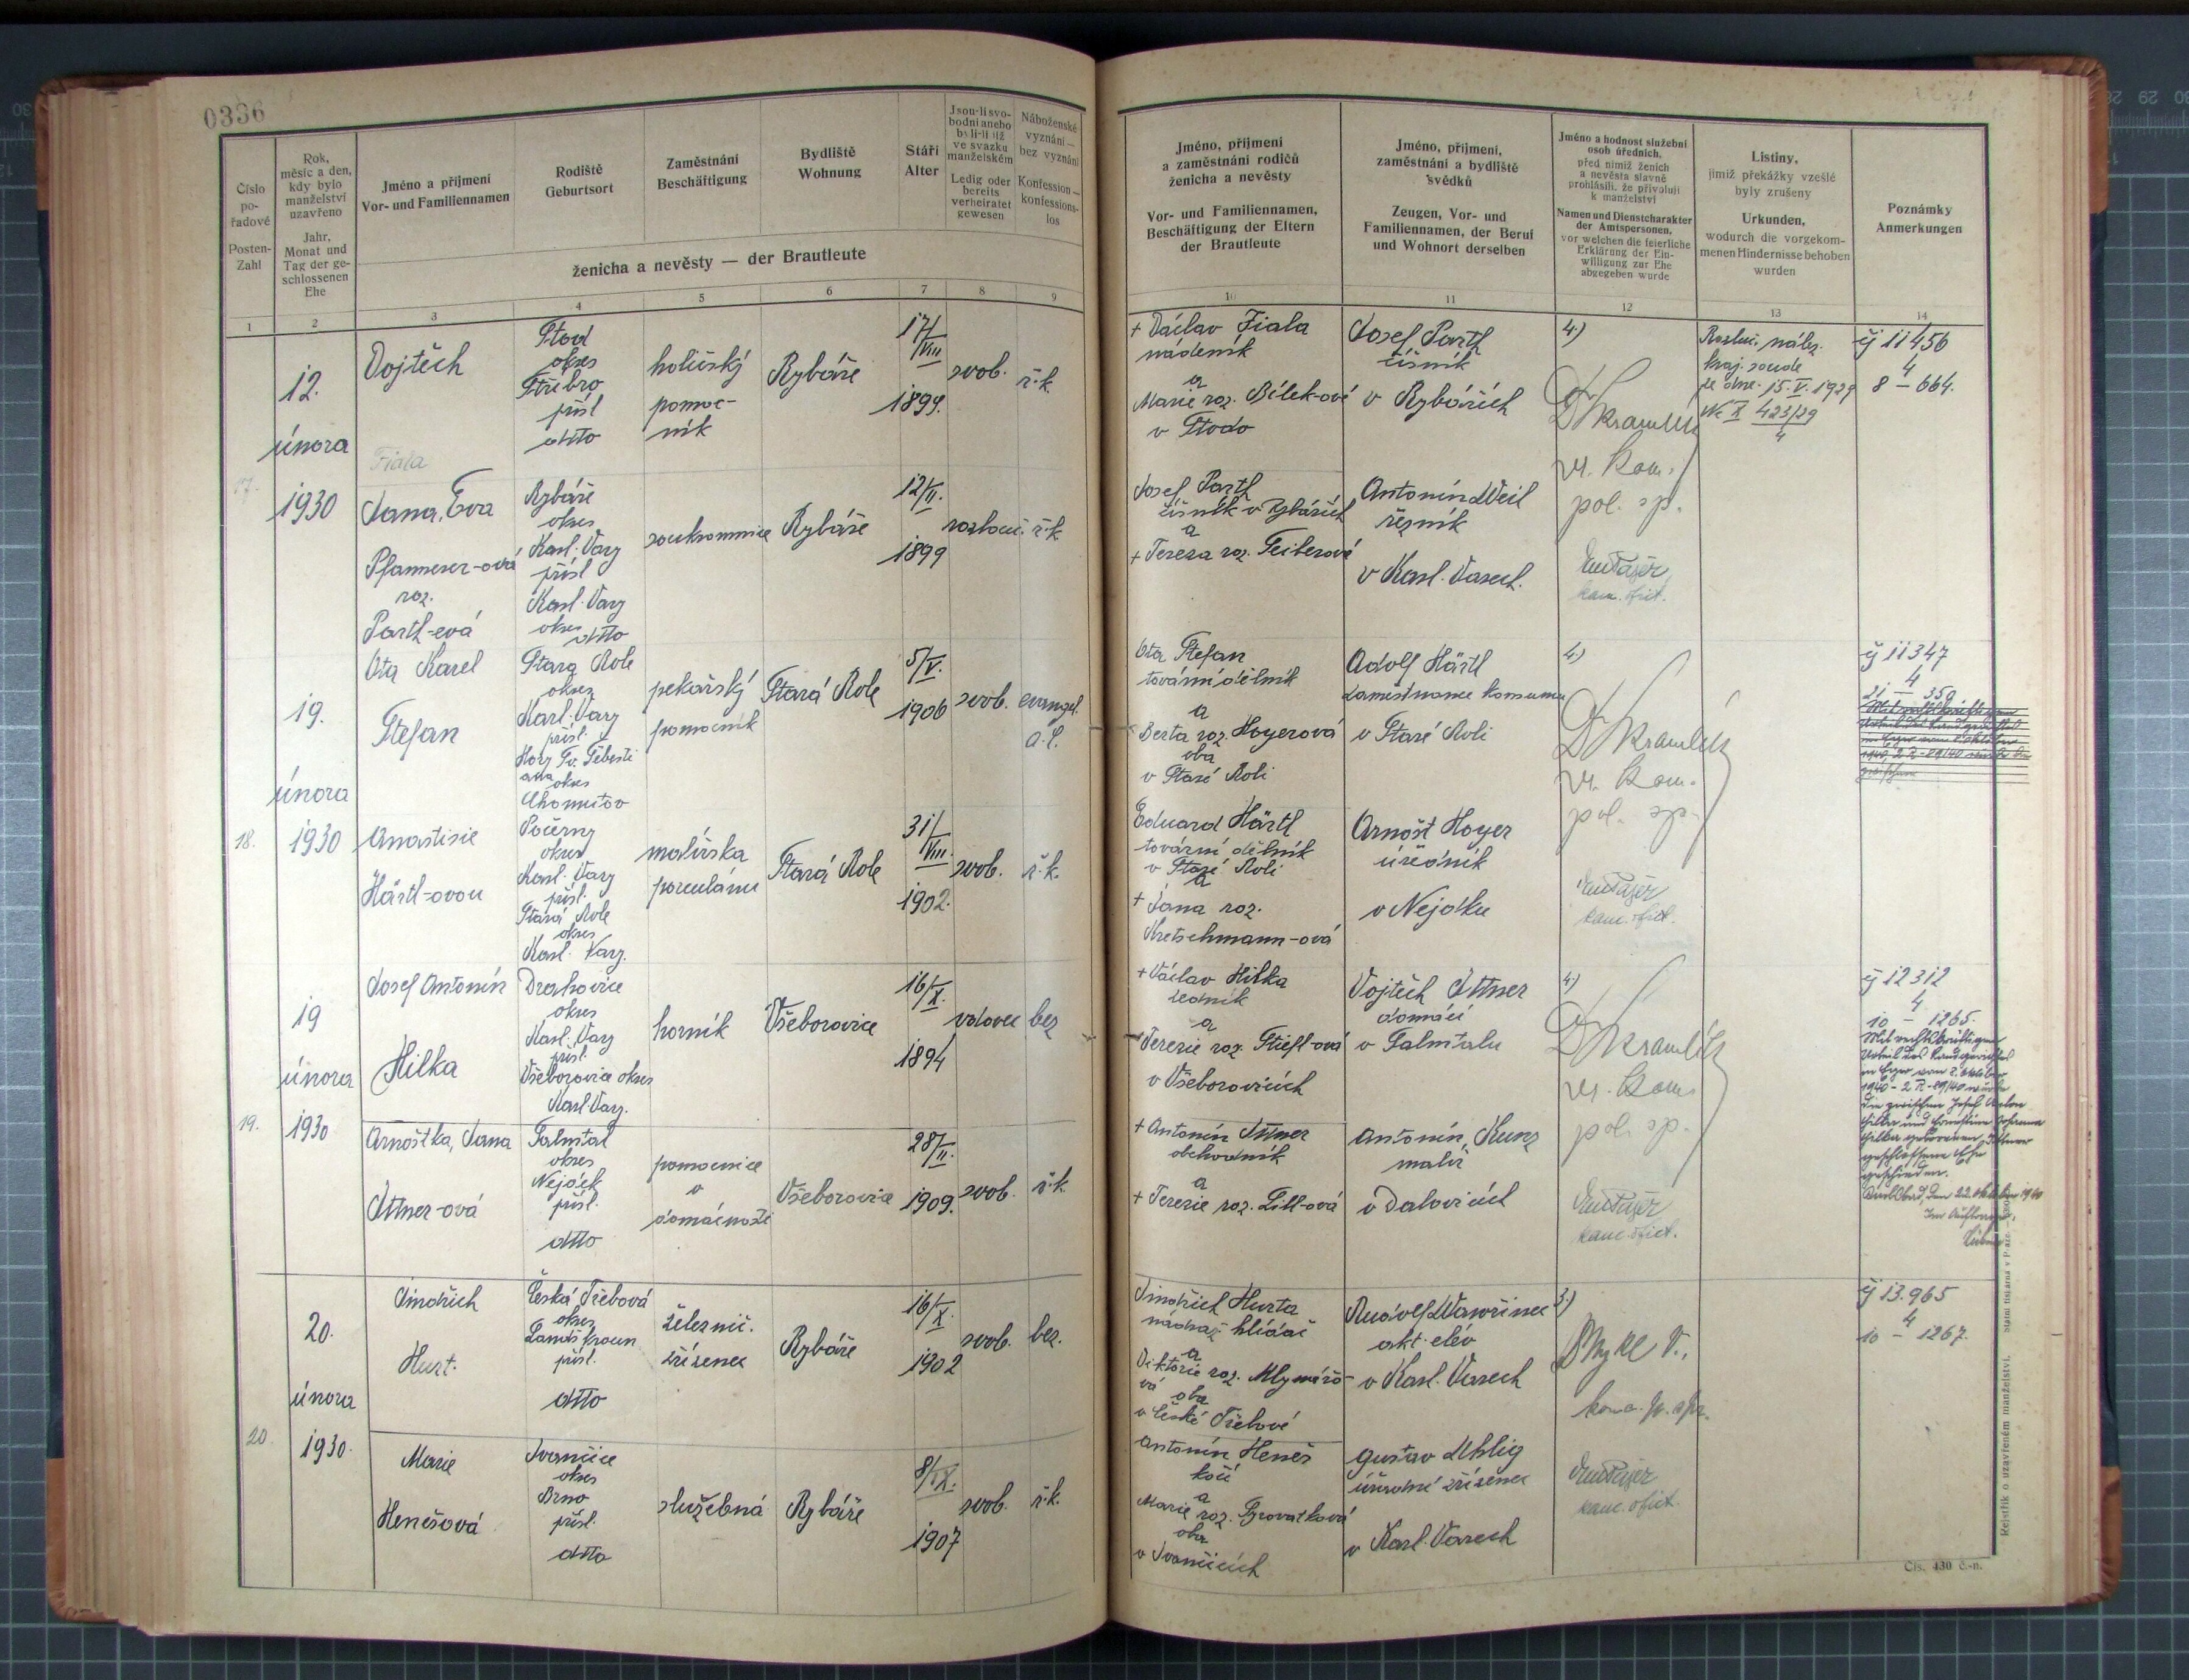 0336
Číslo
po-
řadové
Posten-
Zahl
Rok,
měsíc a den,
kdy bylo
manželství
uzavřeno
Jahr,
Monat und
Tag der ge-
schlossenen
Ehe
Jméno a příjmení
Vor- und Familiennamen
Rodiště
Geburtsort
Zaměstnání
Beschäftigung
Bydliště
Wohnung
Stáří
Alter
Jsou-li svo-
bodni anebo
byli-li již
ve svazku
manželském
Ledig oder
bereits
verheiratet
gewesen
Náboženské
vyznání —
bez vyznání
Konfession —
konfessions-
los
ženicha a nevěsty — der Brautleute
1 2 3 4 5 6 7 8 9
12.
února
1930
17.
Vojtěch
Fiala
Stod
okres
Stříbro
přísl
dtto
holičský
pomoc-
ník
Rybáře
17/VIII
1899.
svob.
ř.k.
Jana, Eva
Pfanneser-ová
roz.
Partl-ová
Rybáře
okres
Karl. Vary
přísl
Karl. Vary
okres
dtto
soukromnice
Rybáře
12/II.
1899
rozlouč.
ř.k.
19.
února
1930
18.
Ota Karel
Stefan
Stará Role
okres
Karl. Vary
přísl.
Hory Sv. Šebesti
ana
okres
Chomutov
pekařský
pomocník
Stará Role
5/V.
1906
svob.
evangel.
a.v.
Anastisie
Härtl-ovou
Počerny
okres
Karl. Vary
přísl.
Stará Role
okres
Karl. Vary.
malířska
porculánu
Stará Role
31/VIII.
1902.
svob.
ř.k.
19
února
1930
19.
Josef Antonín
Hilka
Drahovice
okres
Karl. Vary
přísl.
Všeborovice okres
Karl Vary.
horník
Všeborovice
16/X.
1894
vdovec
bez
Arnoštka, Jana
Ittner-ová
Salmtal
okres
Nejdek
přísl.
dtto
pomocnice
v
domácnosti
Všeborovice
28/II.
1909.
svob.
ř.k.
20.
února
1930.
20.
Jindřich
Hurt.
Česká Třebová
okres
Lanškroun
přísl.
dtto
železnič.
zřízenec
Rybáře
16/X.
1902
svob.
bez.
Marie
Henešová
Ivančice
okres
Brno
přísl.
dtto
služebná
Rybáře
8/IX.
1907
svob.
ř.k.
Jméno, příjmení
a zaměstnání rodičů
ženicha a nevěsty
Vor- und Familiennamen,
Beschäftigung der Eltern
der Brautleute
Jméno, příjmení,
zaměstnání a bydliště
svědků
Zeugen, Vor- und
Familiennamen, der Beruf
und Wohnort derselben
Jméno a hodnost služební
osob úředních,
před nimiž ženich
a nevěsta slavně
prohlásili, že přivolují
k manželství
Namen und Dienstcharakter
der Amtspersonen,
vor welchen die feierliche
Erklärung der Ein-
willigung zur Ehe
abgegeben wurde
Listiny,
jimiž překážky vzešlé
byly zrušeny
Urkunden,
wodurch die vorgekom-
menen Hindernisse behoben
wurden
Poznámky
Anmerkungen
10 11 12 13 14
+ Václav Fiala
nádeník
a
Marie roz. Bílek-ové
v Stodo
Josef Partl
číšník
v Rybářích
4)
Dr Kramlík
vr. kom.
pol. sp.
Rozluč. nález.
kraj. soudu
ze dne. 15.V.1929
Nc X 423/29
4
čj 11456
4
8 — 664.
Josef Partl
číšník v Rybářích
a
+ Tereza roz.
Antonín Weil
řezník
v Karl. Varech.
kanc. ofict.
Ota Stefan
tovární dělník
a
Berta roz. Hoyerová
oba
v Staré Roli
Adolf Härtl
zaměstnanec konsumu
v Staré Roli
4)
Dr Kramlík
vr. kom.
pol. sp.
čj 11347
4
21 — 359
Eduard Härtl
tovární dělník
v Staré Roli
a
+ Jana roz.
Kretschmann-ová
Arnošt Hoyer
úředník
v Nejdku
kanc. ofict.
+ Václav Hilka
zedník
a
Terezie roz. Stiefl-ová
v Všeborovicích
Vojtěch Ittner
domácí
v Salmtalu
4)
Dr Kramlík
vr. kom.
pol. sp.
čj 12312
4
10 — 1265.
Mit rechtskräftigem
Urteil des Landgerichtes
in Eger vom 2. Oktober
1940 - 2 R - 89/40 wurde
die zwischen Josef Anton
Hilka und Ernestine Johanna
Hilka geborenen Ittner
geschlossene Ehe
geschieden.
Karlsbad, den 22. Oktober 1940
Im Auftrage:
+ Antonín Ittner
obchodník
a
+ Terezie roz. Lill-ová
Antonín Kunz
malíř
v Dalovicích
kanc. ofict.
Jindřich Hurta
nádraž. hlídač
a
Viktorie roz. Mlynářo-
vá
oba
v České Třebové
Rudolf Wawřinec
akt. elév
v Karl. Varech
3)
čj 13.965
4
10 — 1267.
Antonín Heneš
kočí
a
Marie roz. Syrovatková
oba
v Ivančicích
Gustav Uhlig
úřední zřízenec
v Karl. Varech
kanc. ofict.
Rejstřík o uzavřeném manželství.
Čís. 430 č.-n.